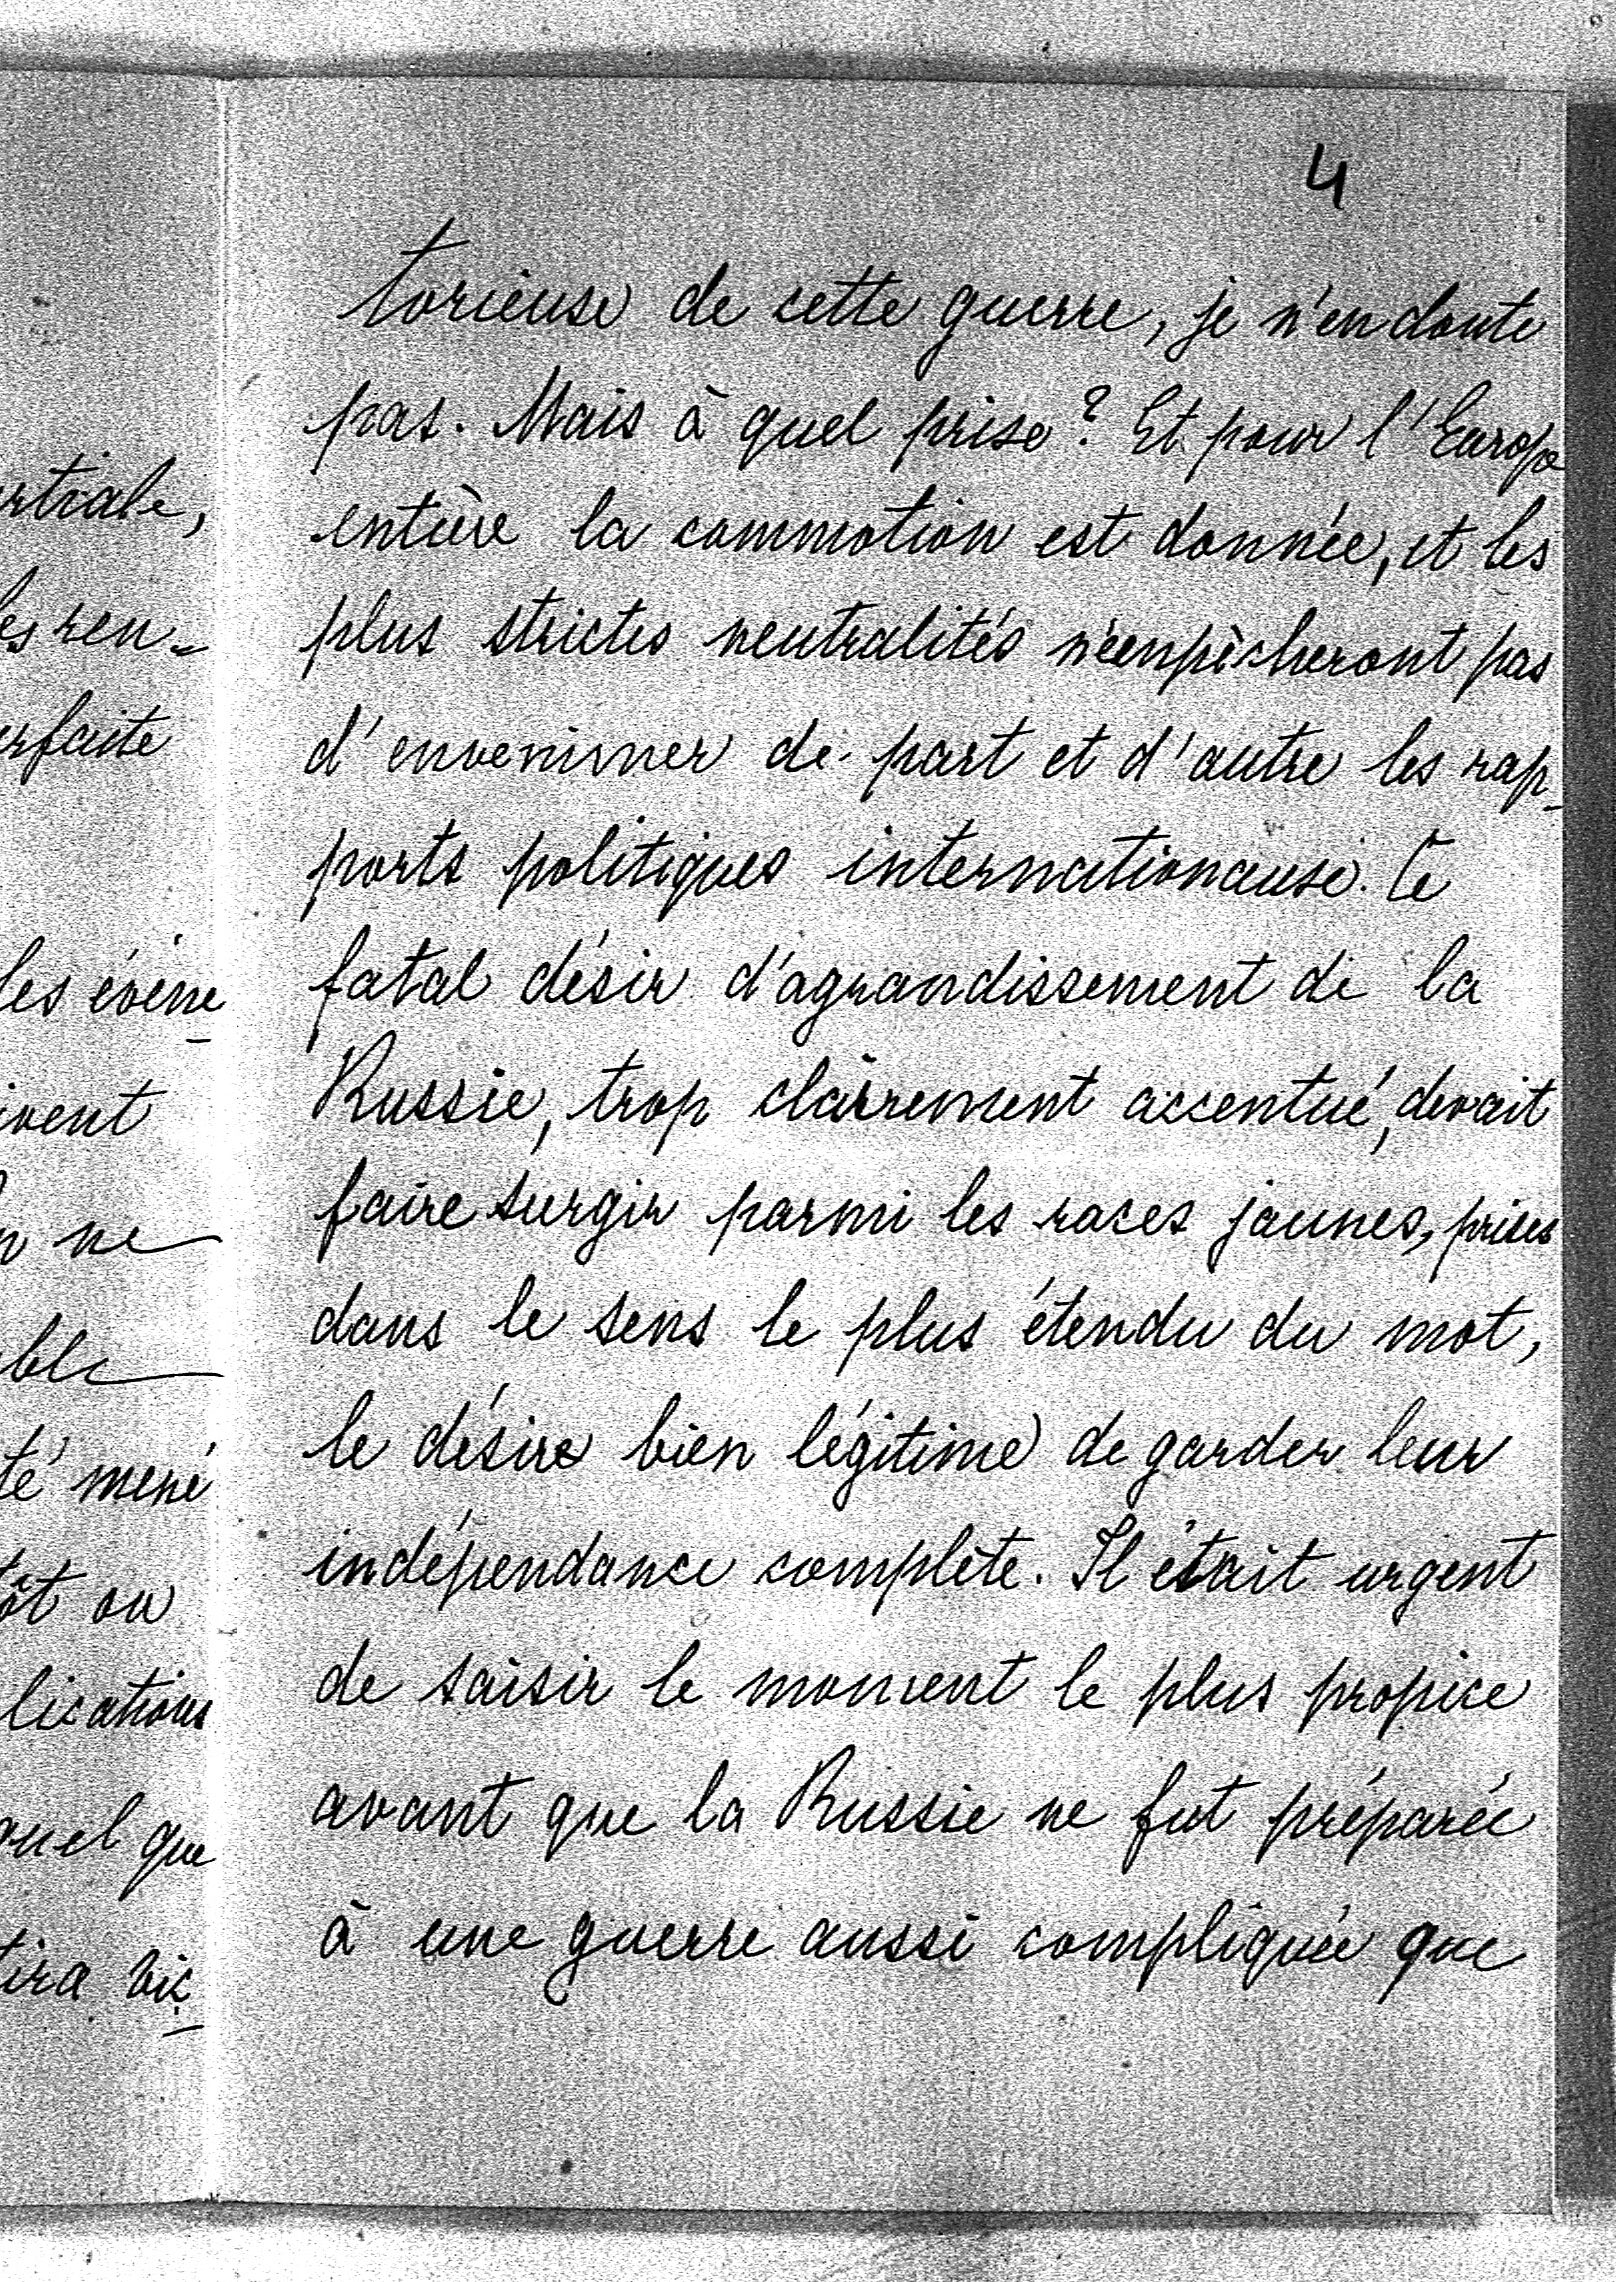 rtiale,
les ren-
rfaite
les évène-
ivent
n ne
ble
té mené
tôt ou
lications
quel que
tira vic-
4
torieuse de cette guerre, je n'en doute
pas. Mais à quel prise? Et pour l'Europe
entière la commotion est donnée, et les
plus strictes neutralités n'empêcheront pas
d'envenimer de part et d'autre les rap-
ports politiques internationaux. Ce
fatal désir d'agrandissement de la
Russie, trop clairement accentué, devait
faire surgir parmi les races jaunes, prises
dans le sens le plus étendu du mot,
le désire bien légitime de garder leur
indépendance complète. Il était urgent
de saisir le moment le plus propice
avant que la Russie ne fut préparée
à une guerre aussi compliquée que